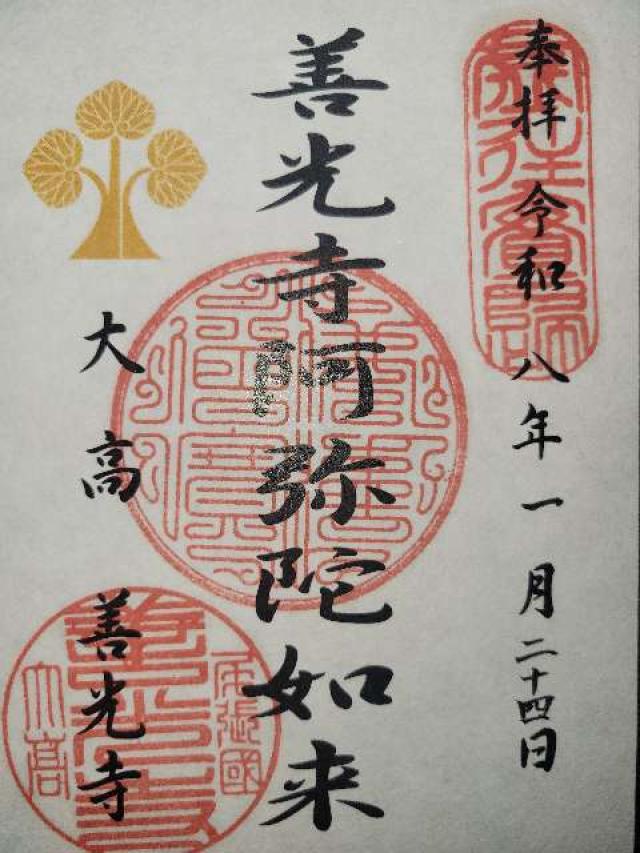 奉拝 令和八年一月二十四日
善光寺阿弥陀如来
大高 善光寺
尾張國
大高